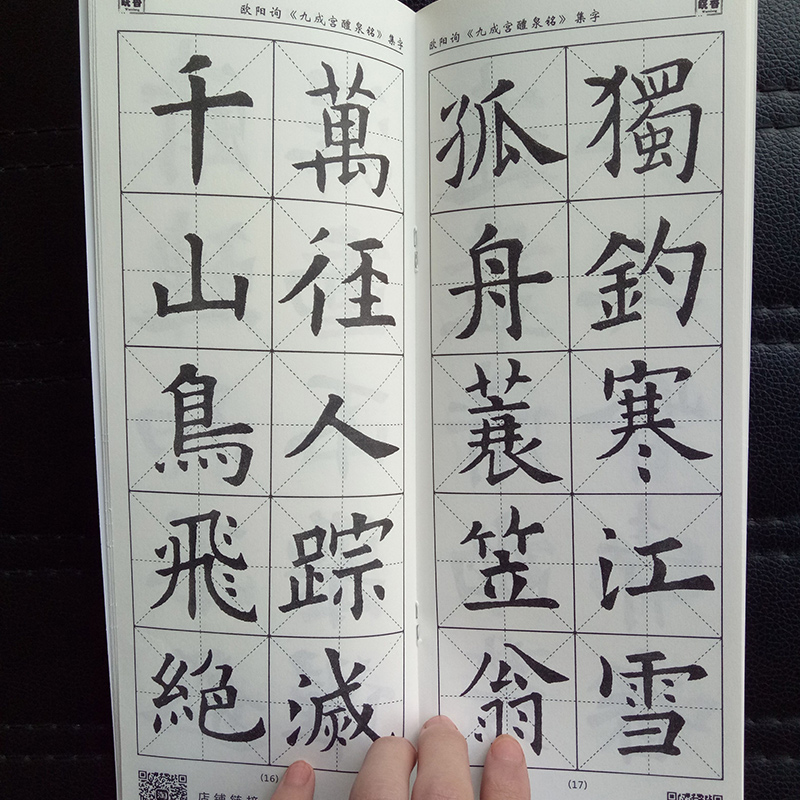 欧阳询《九成宫醴泉铭》集字
千山鳥飛絕
萬徑人踪滅
(16)
店铺链接
欧阳询《九成宫醴泉铭》集字
孤舟蓑笠翁
獨釣寒江雪
(17)